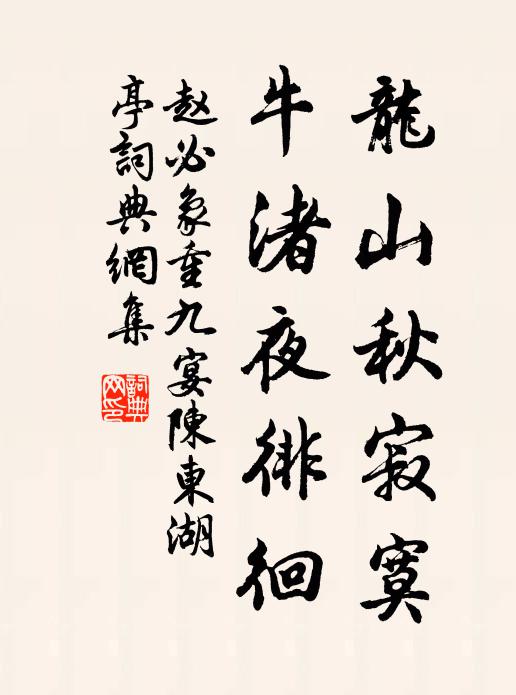 龍山秋寂寞
牛渚夜徘徊
赵必象重九宴陳東湖
亭詞典網集
詞典
网印